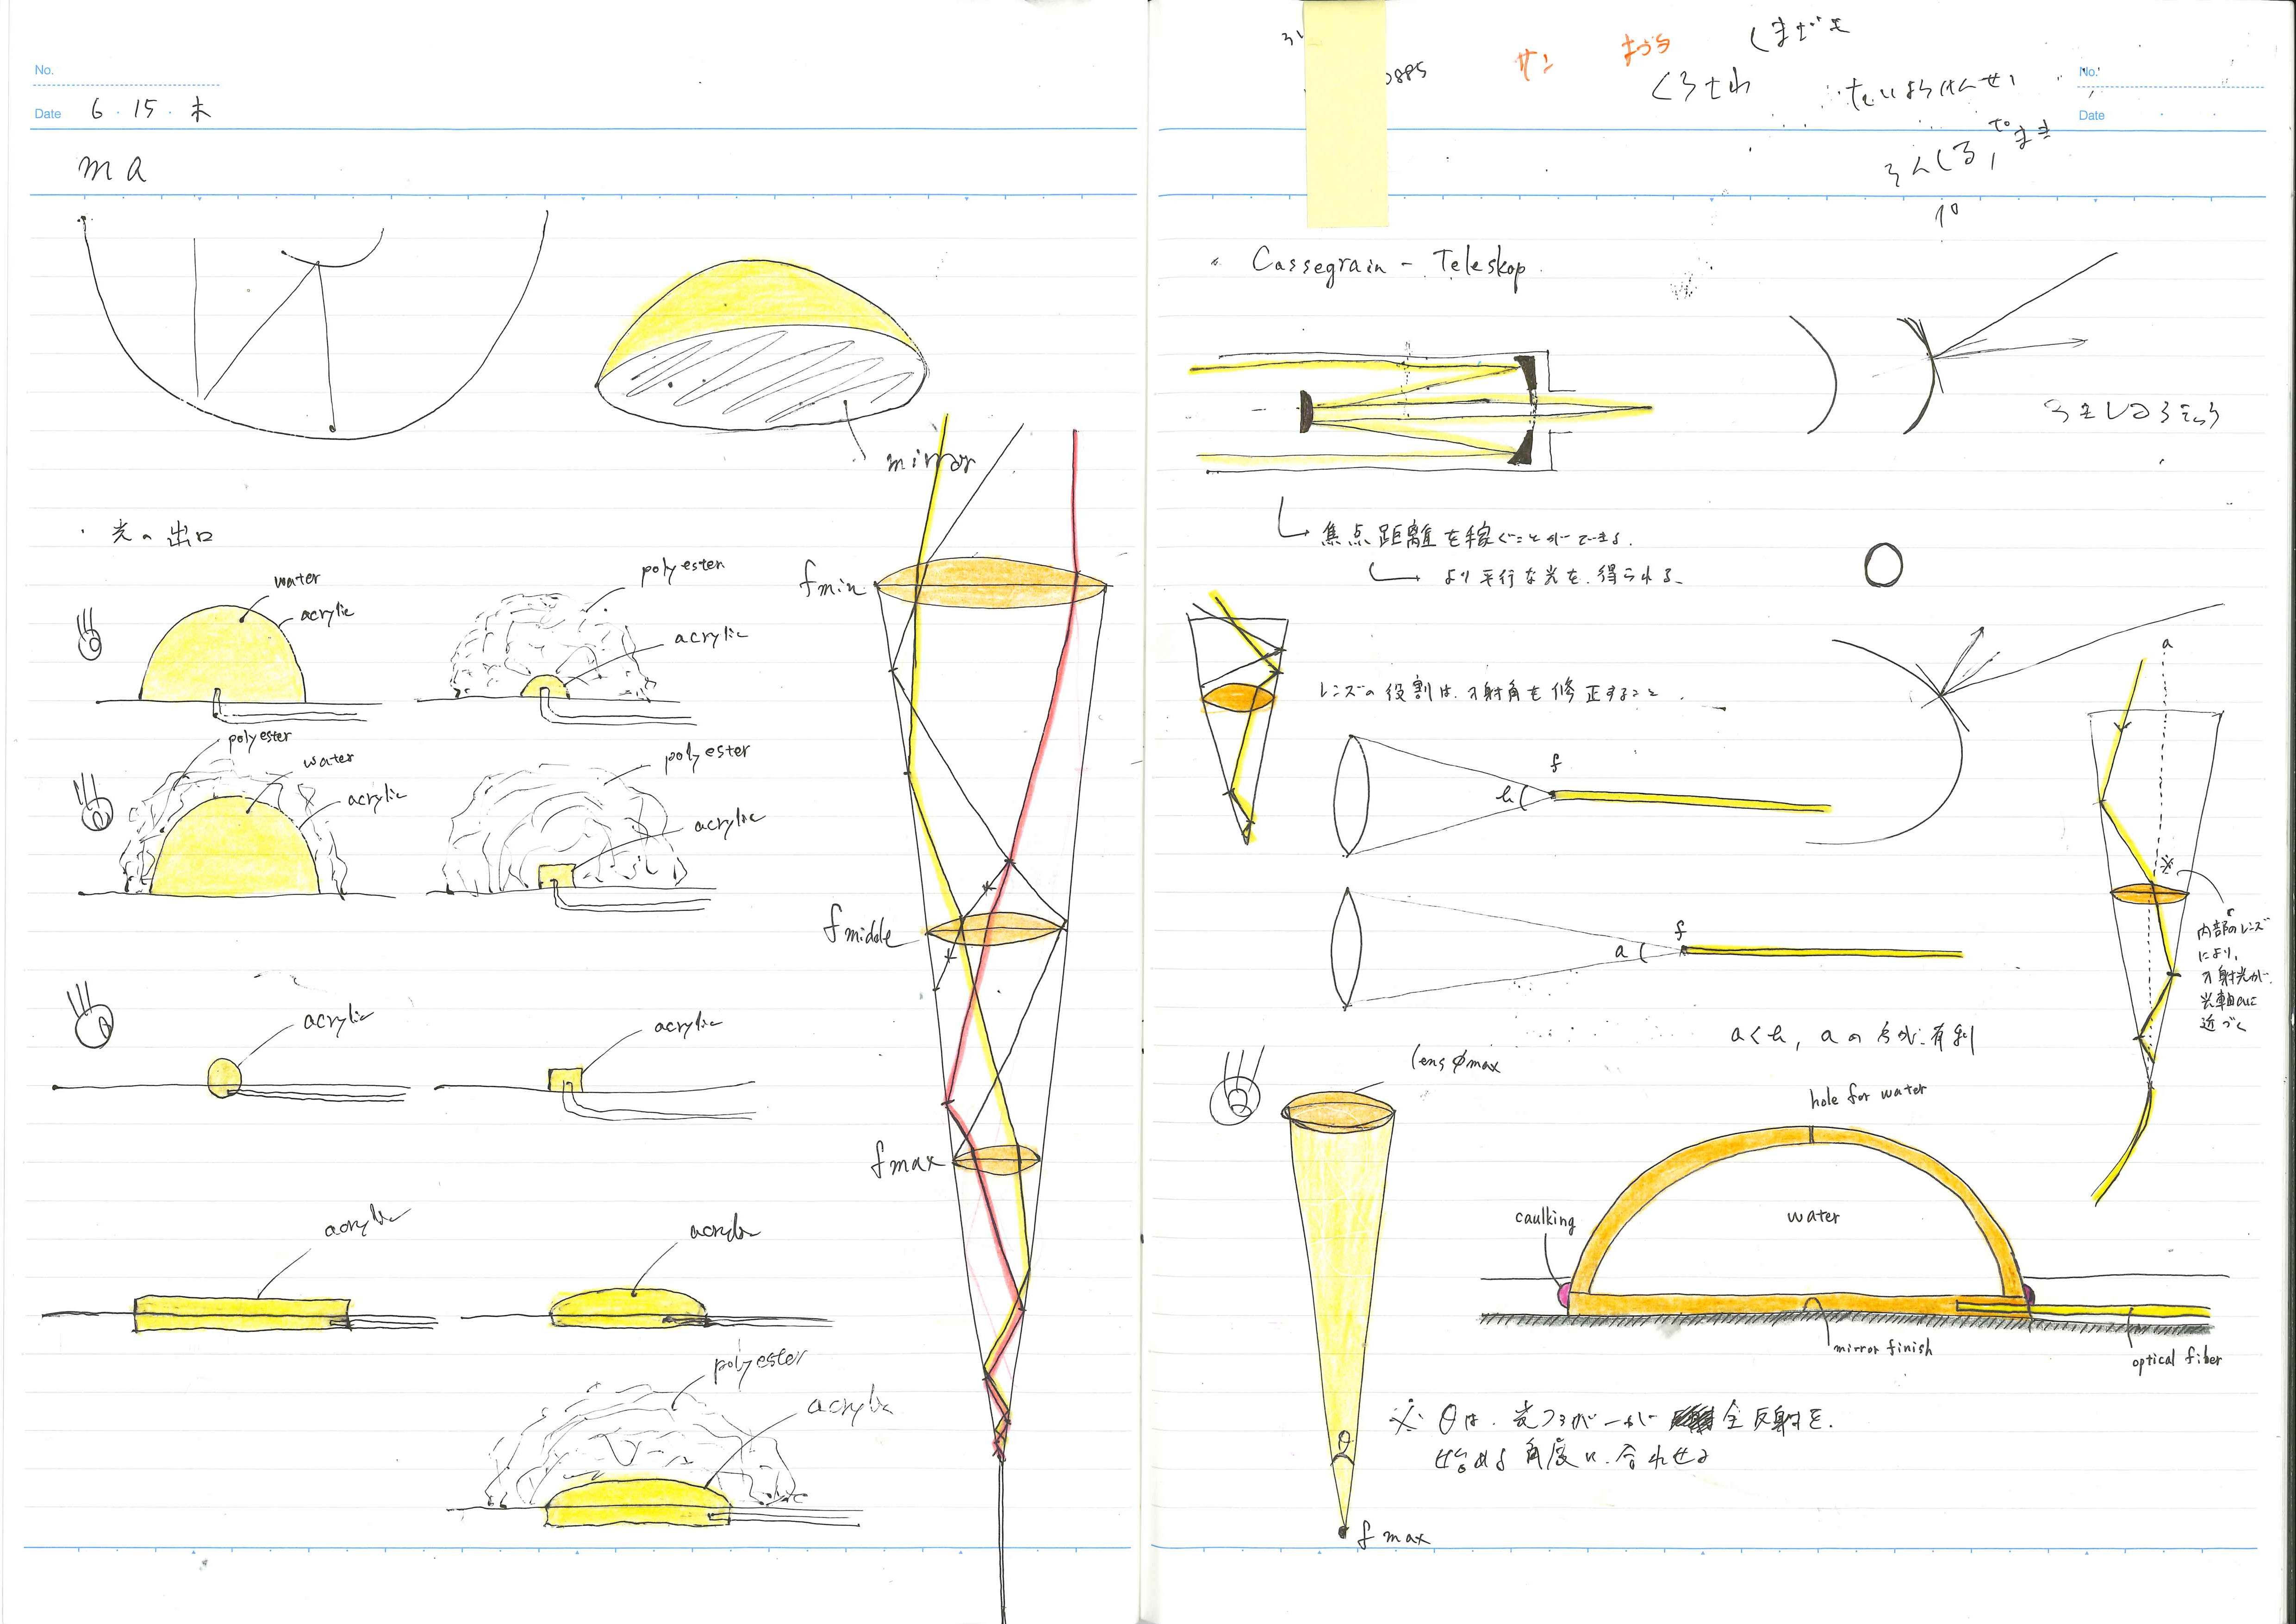 No.
Date 6・15・木
ma
mirror
・光の出口
water
acrylic
polyester
acrylic
polyester
water
acrylic
polyester
acrylic
acrylic
acrylic
acrylic
acrylic
polyester
acrylic
fmin
fmiddle
fmax
0885
サン
くろせわ
No.
Date
Cassegrain - Teleskop
焦点距離を稼ぐことができる.
より平行な光を.得られる.
レンズの役割は.入射角を修正すること.
f
h
a
f
a
a<h, aの方が.有利
※
内部のレンズ
により,
入射光が.
光軸aに
近づく
lens φmax
θ
f max
hole for water
caulking
water
mirror finish
optical fiber
※ θは.光ファイバーが 全反射を.
始める角度に.合わせる